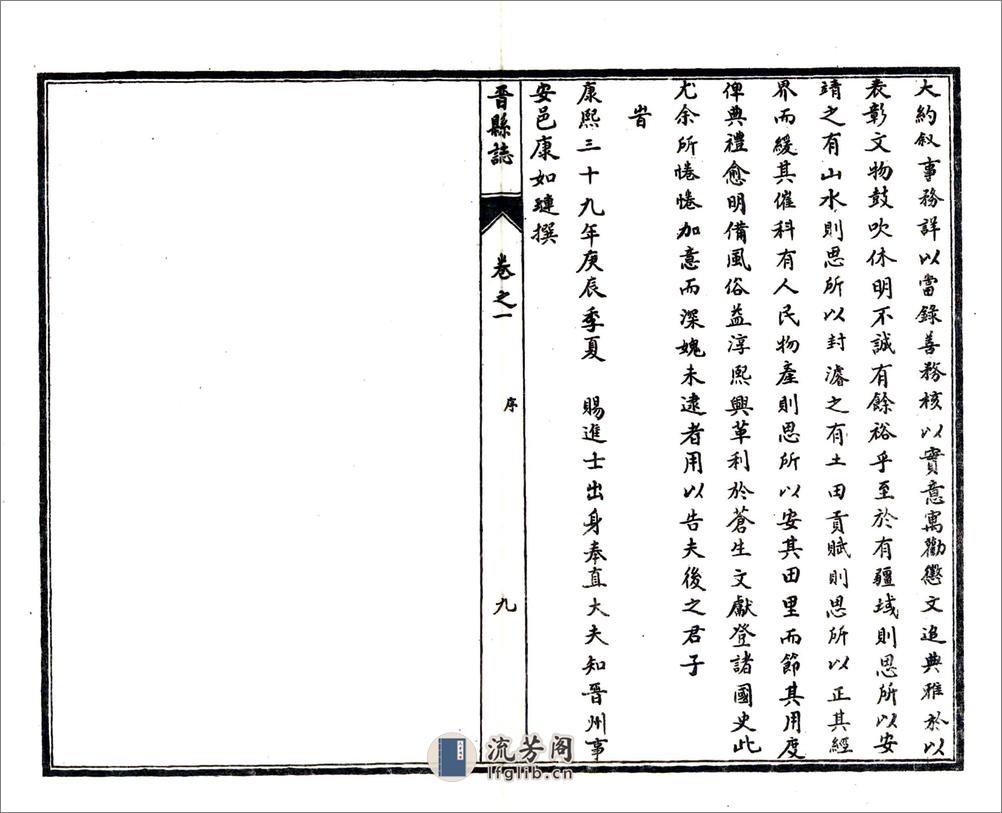 大約敘事務詳以當錄善務核以實意寓勸懲文追典雅於以
表彰文物鼓吹休明不誠有餘裕乎至於有疆域則思所以安
靖之有山水則思所以封濬之有土田貢賦則思所以正其經
界而緩其催科有人民物產則思所以安其田里而節其用度
俾典禮愈明備風俗益淳熙興革利於蒼生文獻登諸國史此
尤余所惓惓加意而深媿未逮者用以告夫後之君子
旹
康熙三十九年庚辰季夏　賜進士出身奉直大夫知晉州事
安邑康如璉撰
晉縣誌　卷之一　序　九
流芳阁
lfglib.cn